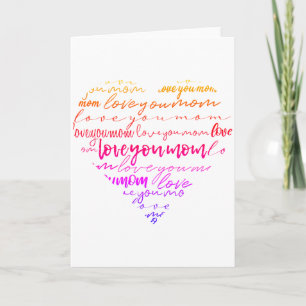 u mom ove you mom
mom love you mom
love you mom
ove you mom love you mom love
om love you mom lo
m love you m
ou mom love
e you mo
ove
m